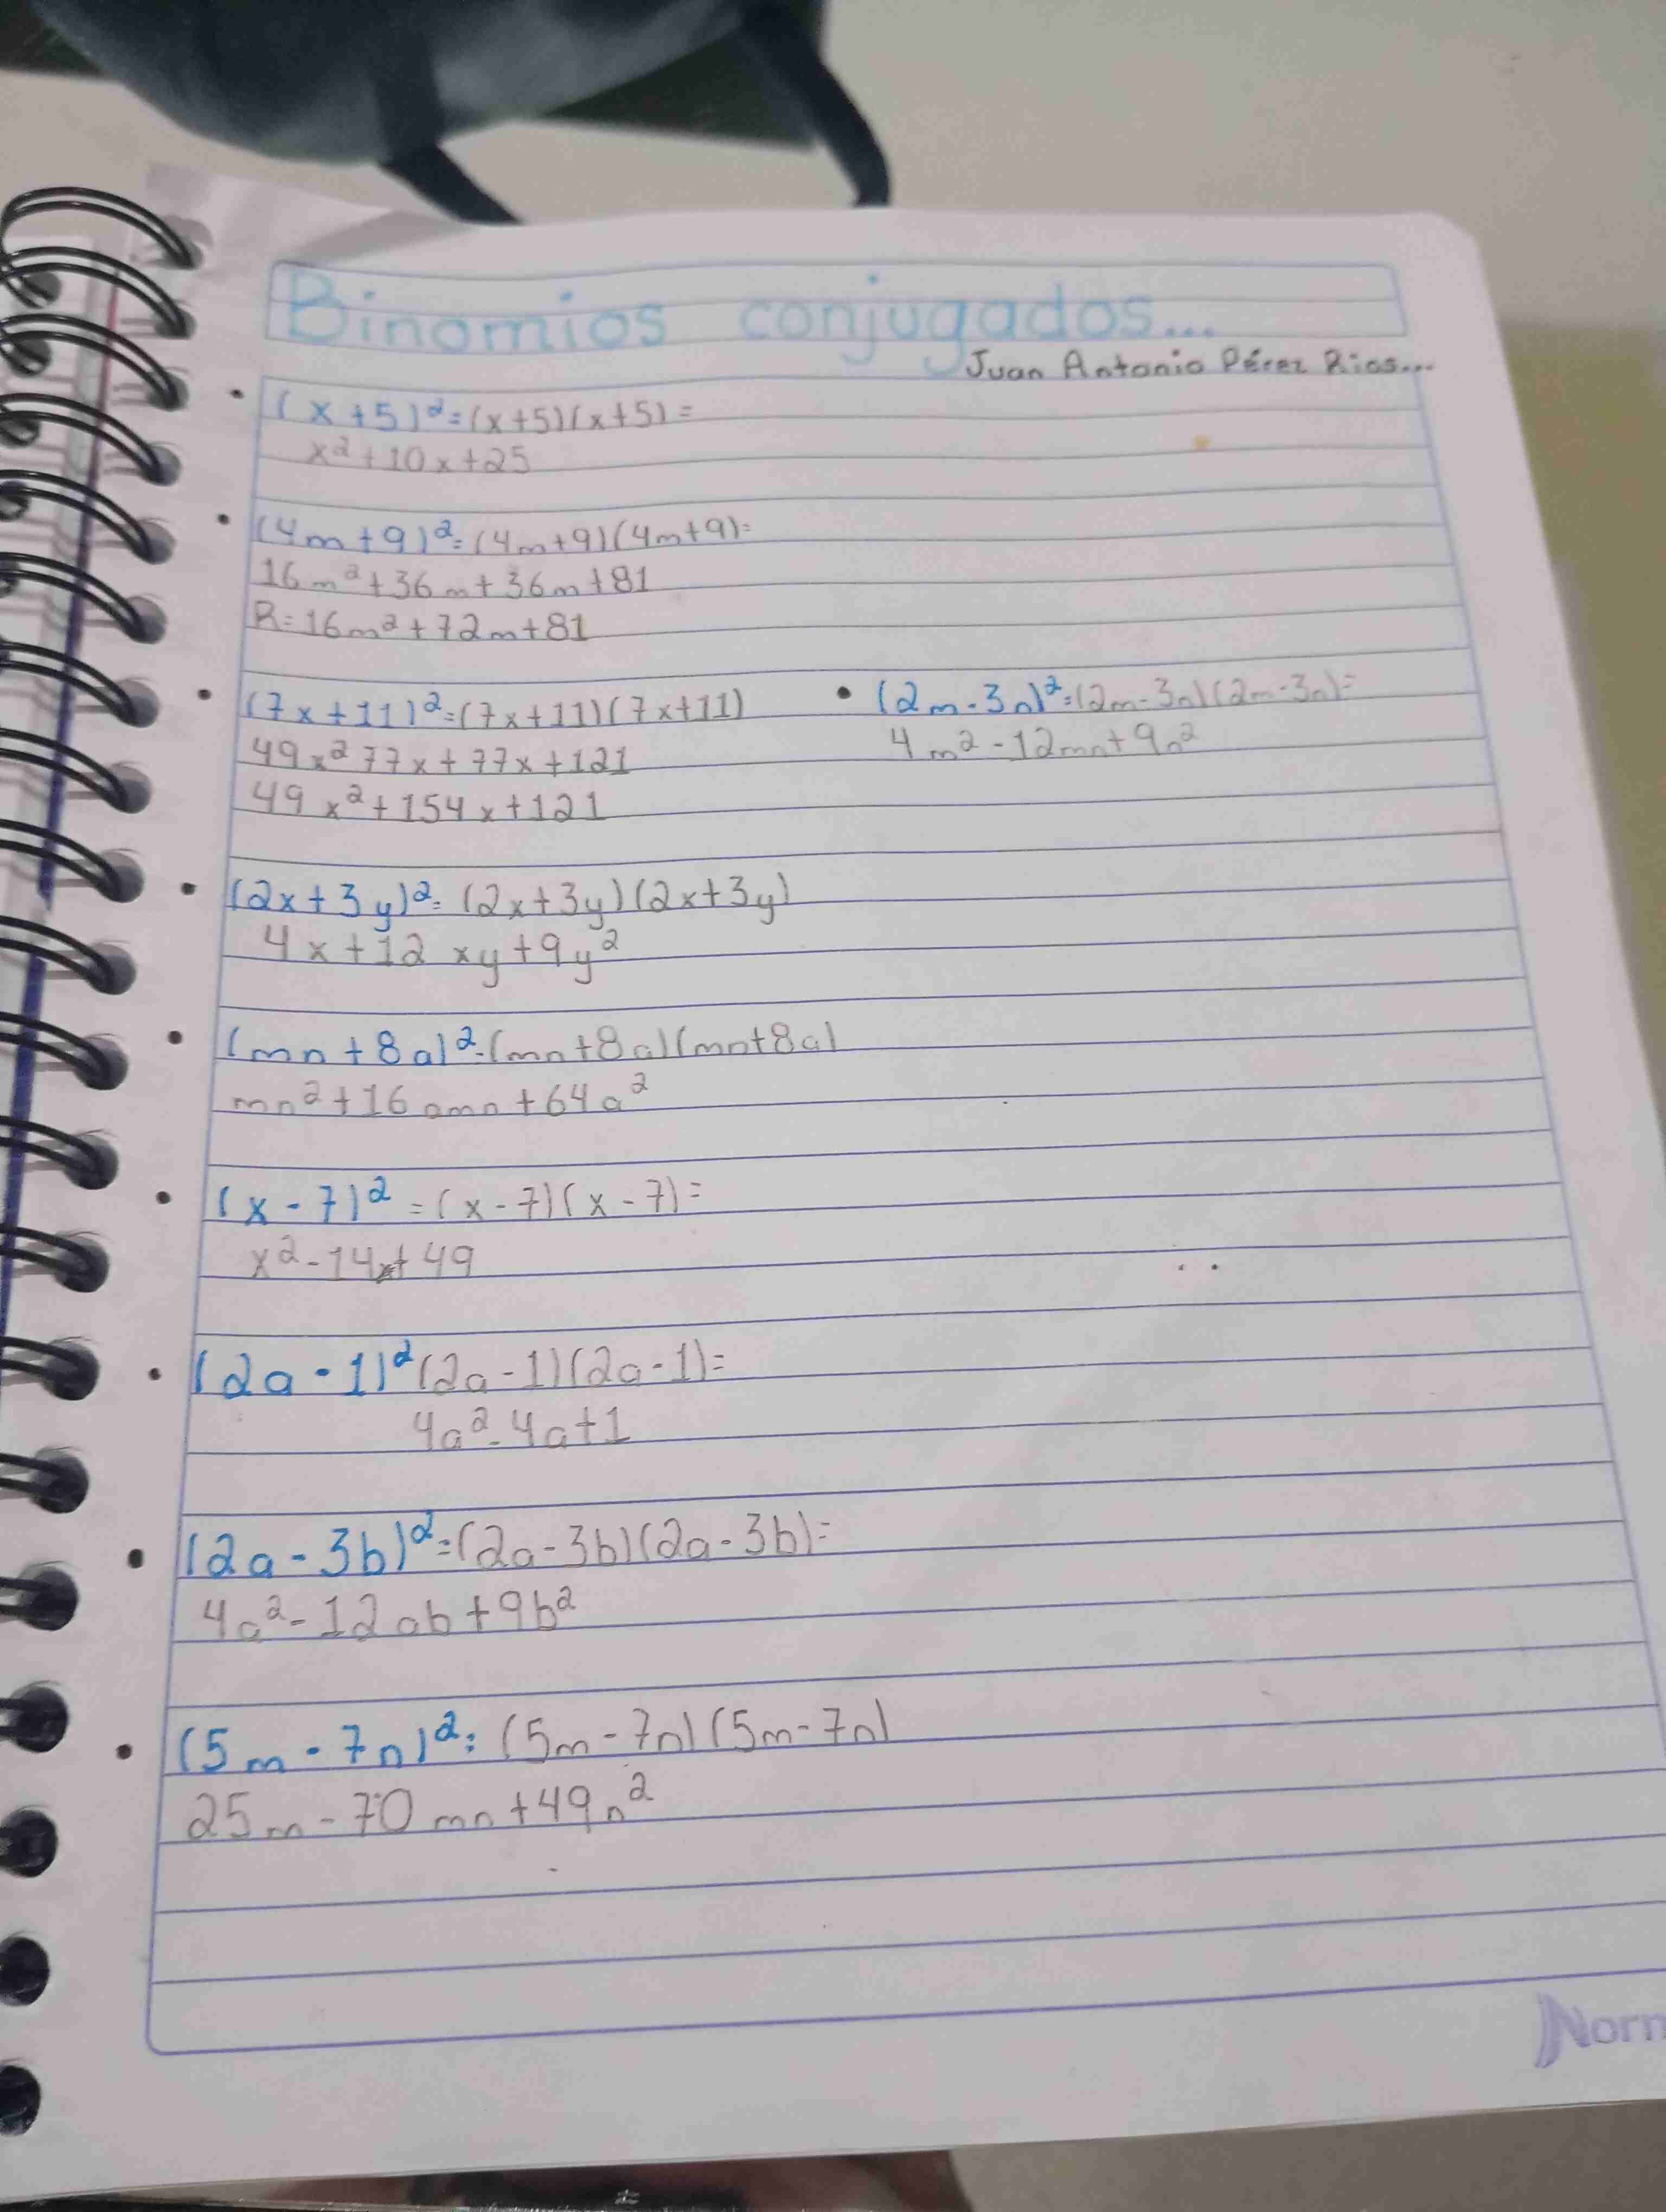 Binomios conjugados...
Juan Antonio Pérez Rios...
• (x+5)²=(x+5)(x+5)=
x²+10x+25
• (4m+9)²=(4m+9)(4m+9)=
16m²+36m+36m+81
R=16m²+72m+81
• (7x+11)²=(7x+11)(7x+11)
49x²77x+77x+121
49x²+154x+121
• (2m-3n)²=(2m-3n)(2m-3n)=
4m²-12mn+9n²
• (2x+3y)²=(2x+3y)(2x+3y)
4x+12xy+9y²
• (mn+8a)²=(mn+8a)(mn+8a)
mn²+16amn+64a²
• (x-7)²=(x-7)(x-7)=
x²-14x+49
• (2a-1)²(2a-1)(2a-1)=
4a²-4a+1
• (2a-3b)²=(2a-3b)(2a-3b)=
4a²-12ab+9b²
• (5m-7n)²=(5m-7n)(5m-7n)
25m-70mn+49n²